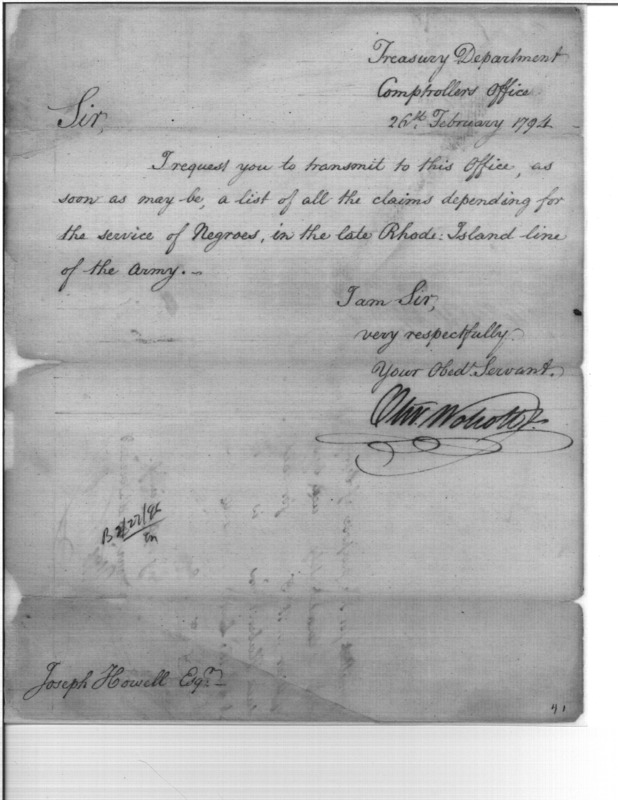 Treasury Department
Comptrollers Office
26th. February 1794
Sir,
I request you to transmit to this Office, as
soon as may be, a list of all the claims depending for
the service of Negroes, in the late Rhode:Island line
of the Army.~
I am Sir,
very respectfully
Your Obedt. Servant.
Oliv. Wolcott Jr.
B 2/27/85
Joseph Howell Esqr.
41